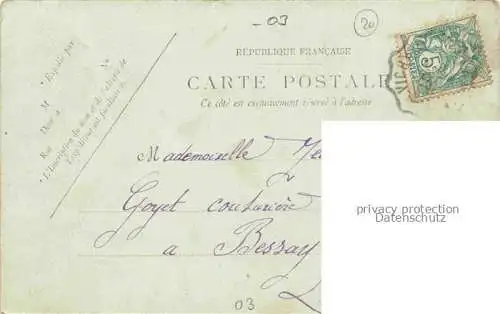 -03
20
RÉPUBLIQUE FRANÇAISE
CARTE POSTALE
Ce côté est exclusivement réservé à l'adresse
* Expédié par
M
Demt à
Rue
No
* L'Inscription du nom et de l'adresse de
l'expéditeur est facultative.
5
Mademoiselle
Goyet couturière
a Bessay
03
privacy protection
Datenschutz